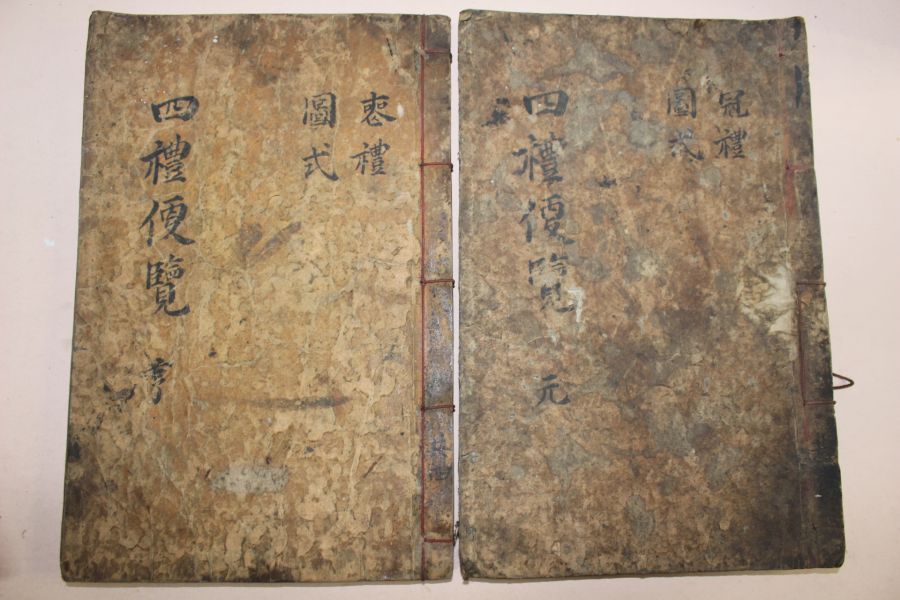 冠禮
圖式
四禮便覽 元
喪禮
圖式
四禮便覽 亨